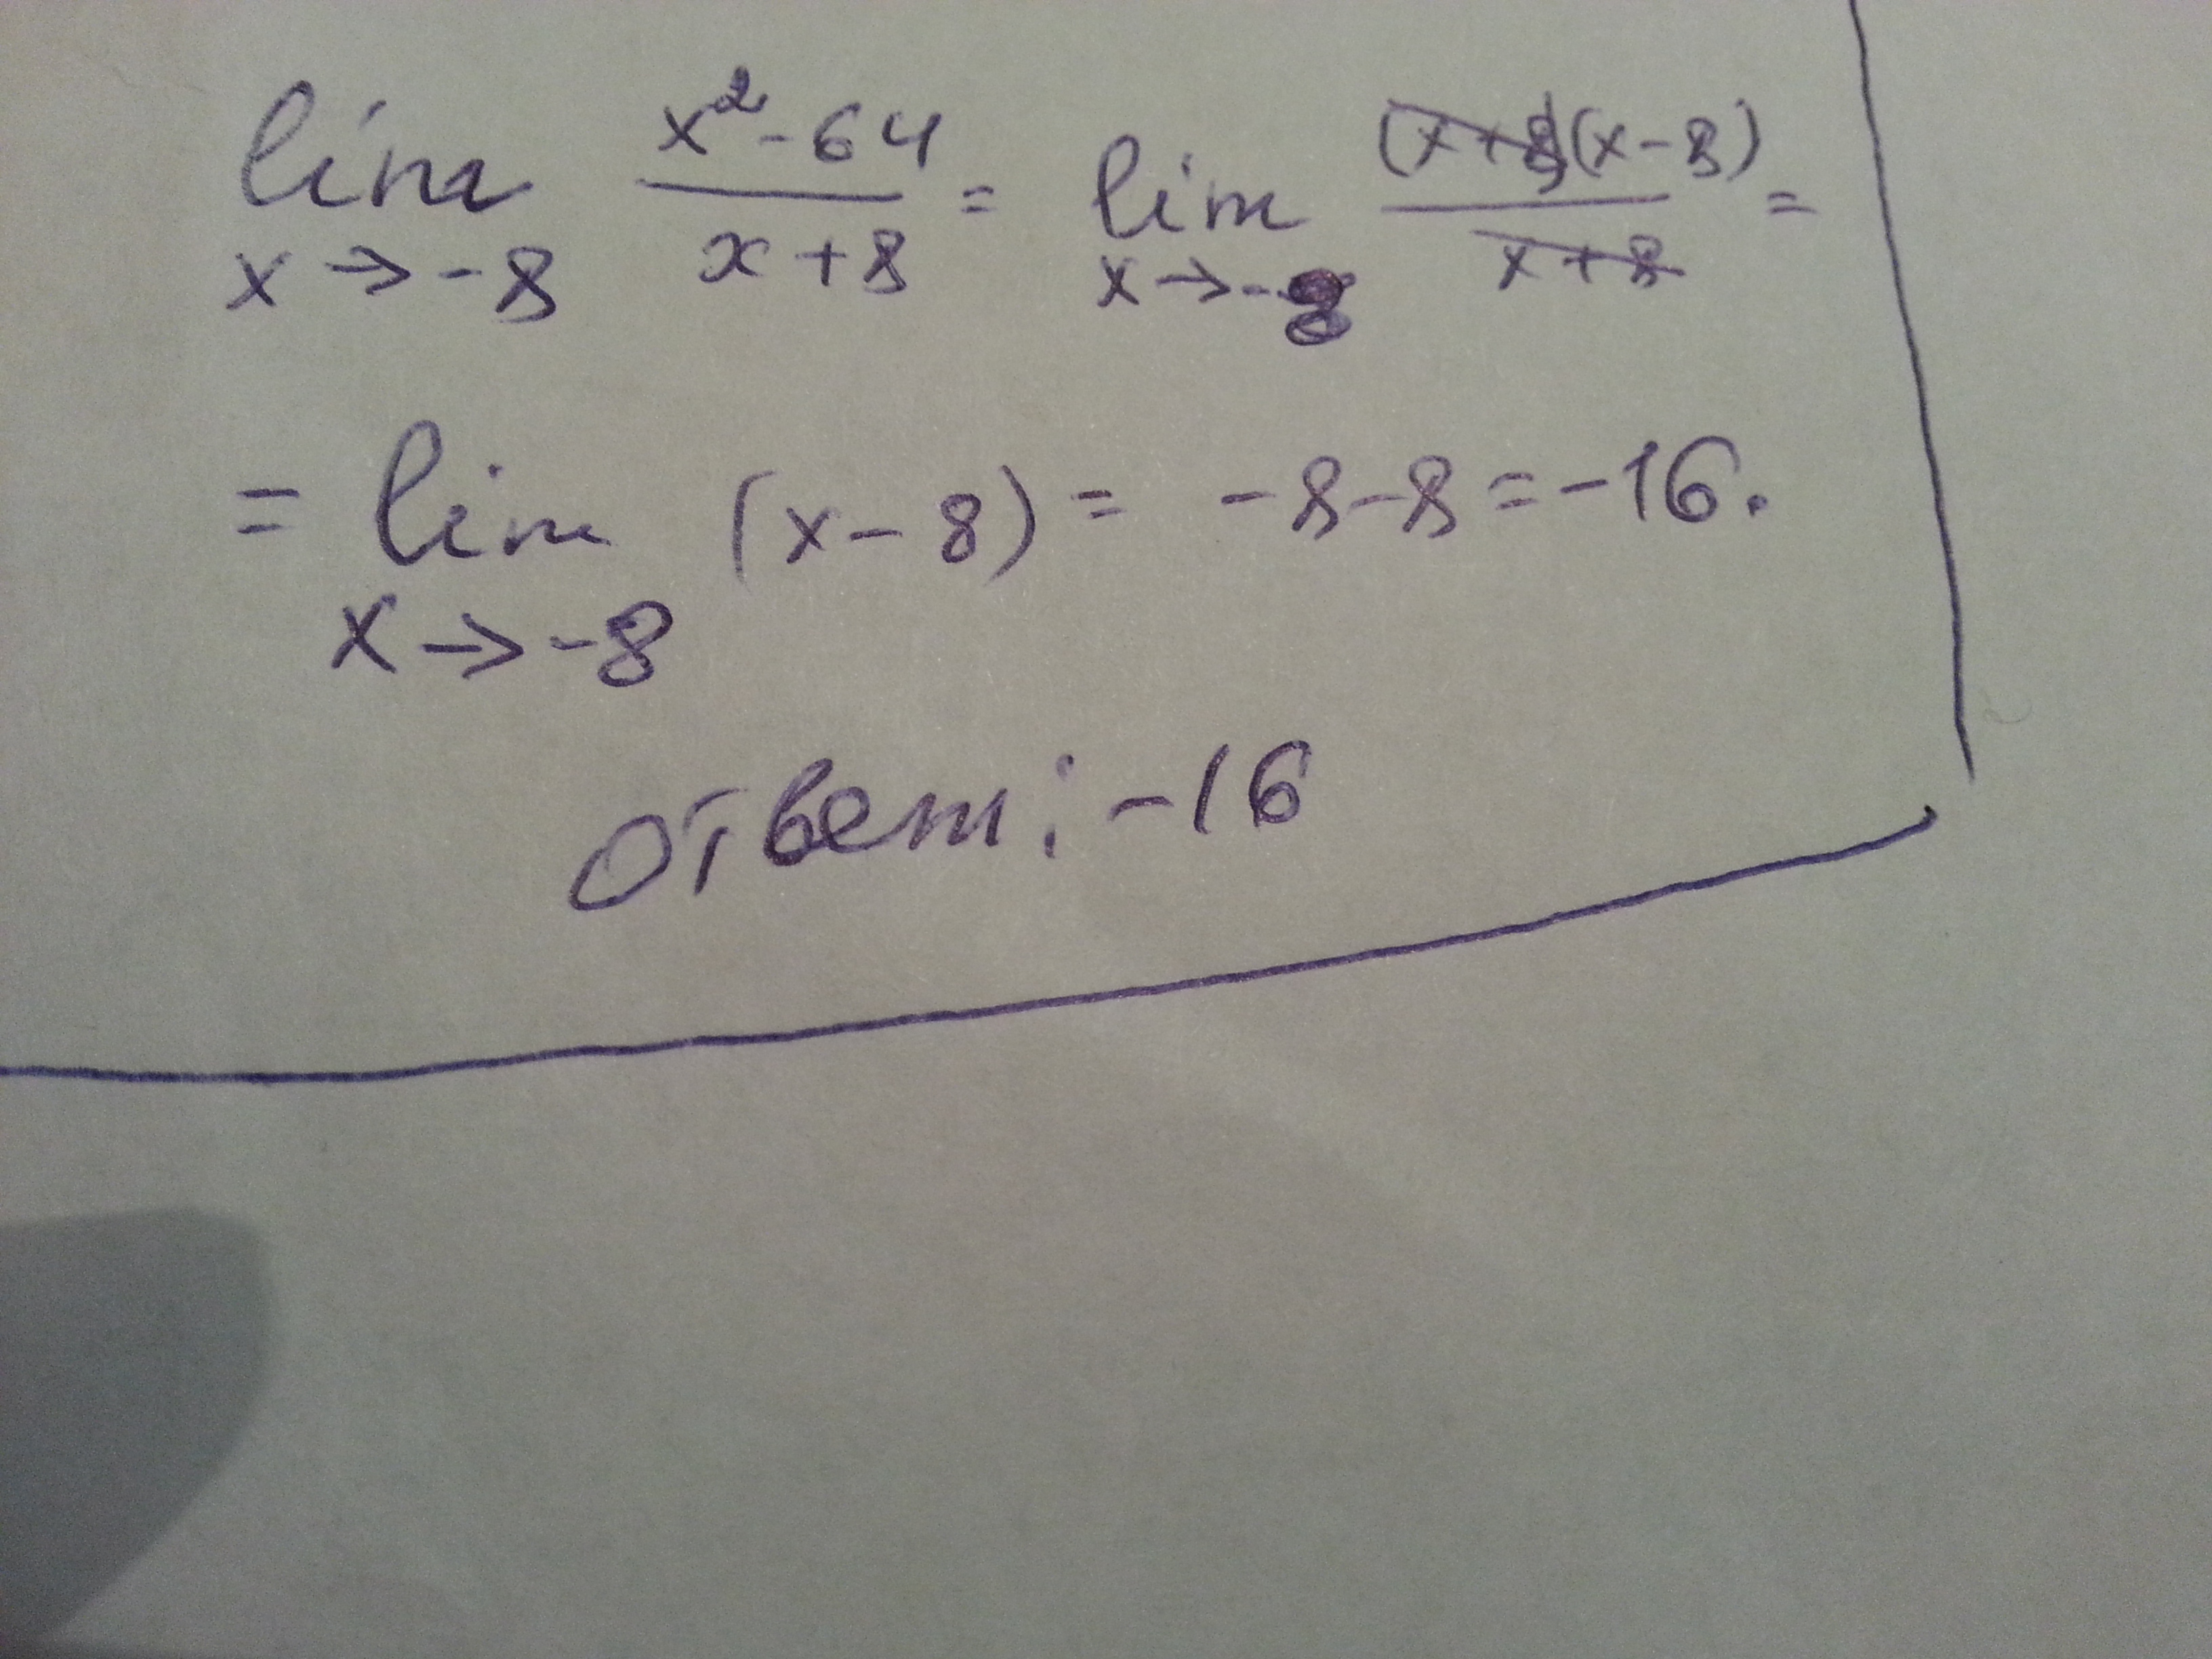 lim x²-64 / x+8 = lim (x+8)(x-8) / x+8 =
x→-8 x→-8
= lim (x-8) = -8-8=-16.
x→-8
Ответ: -16